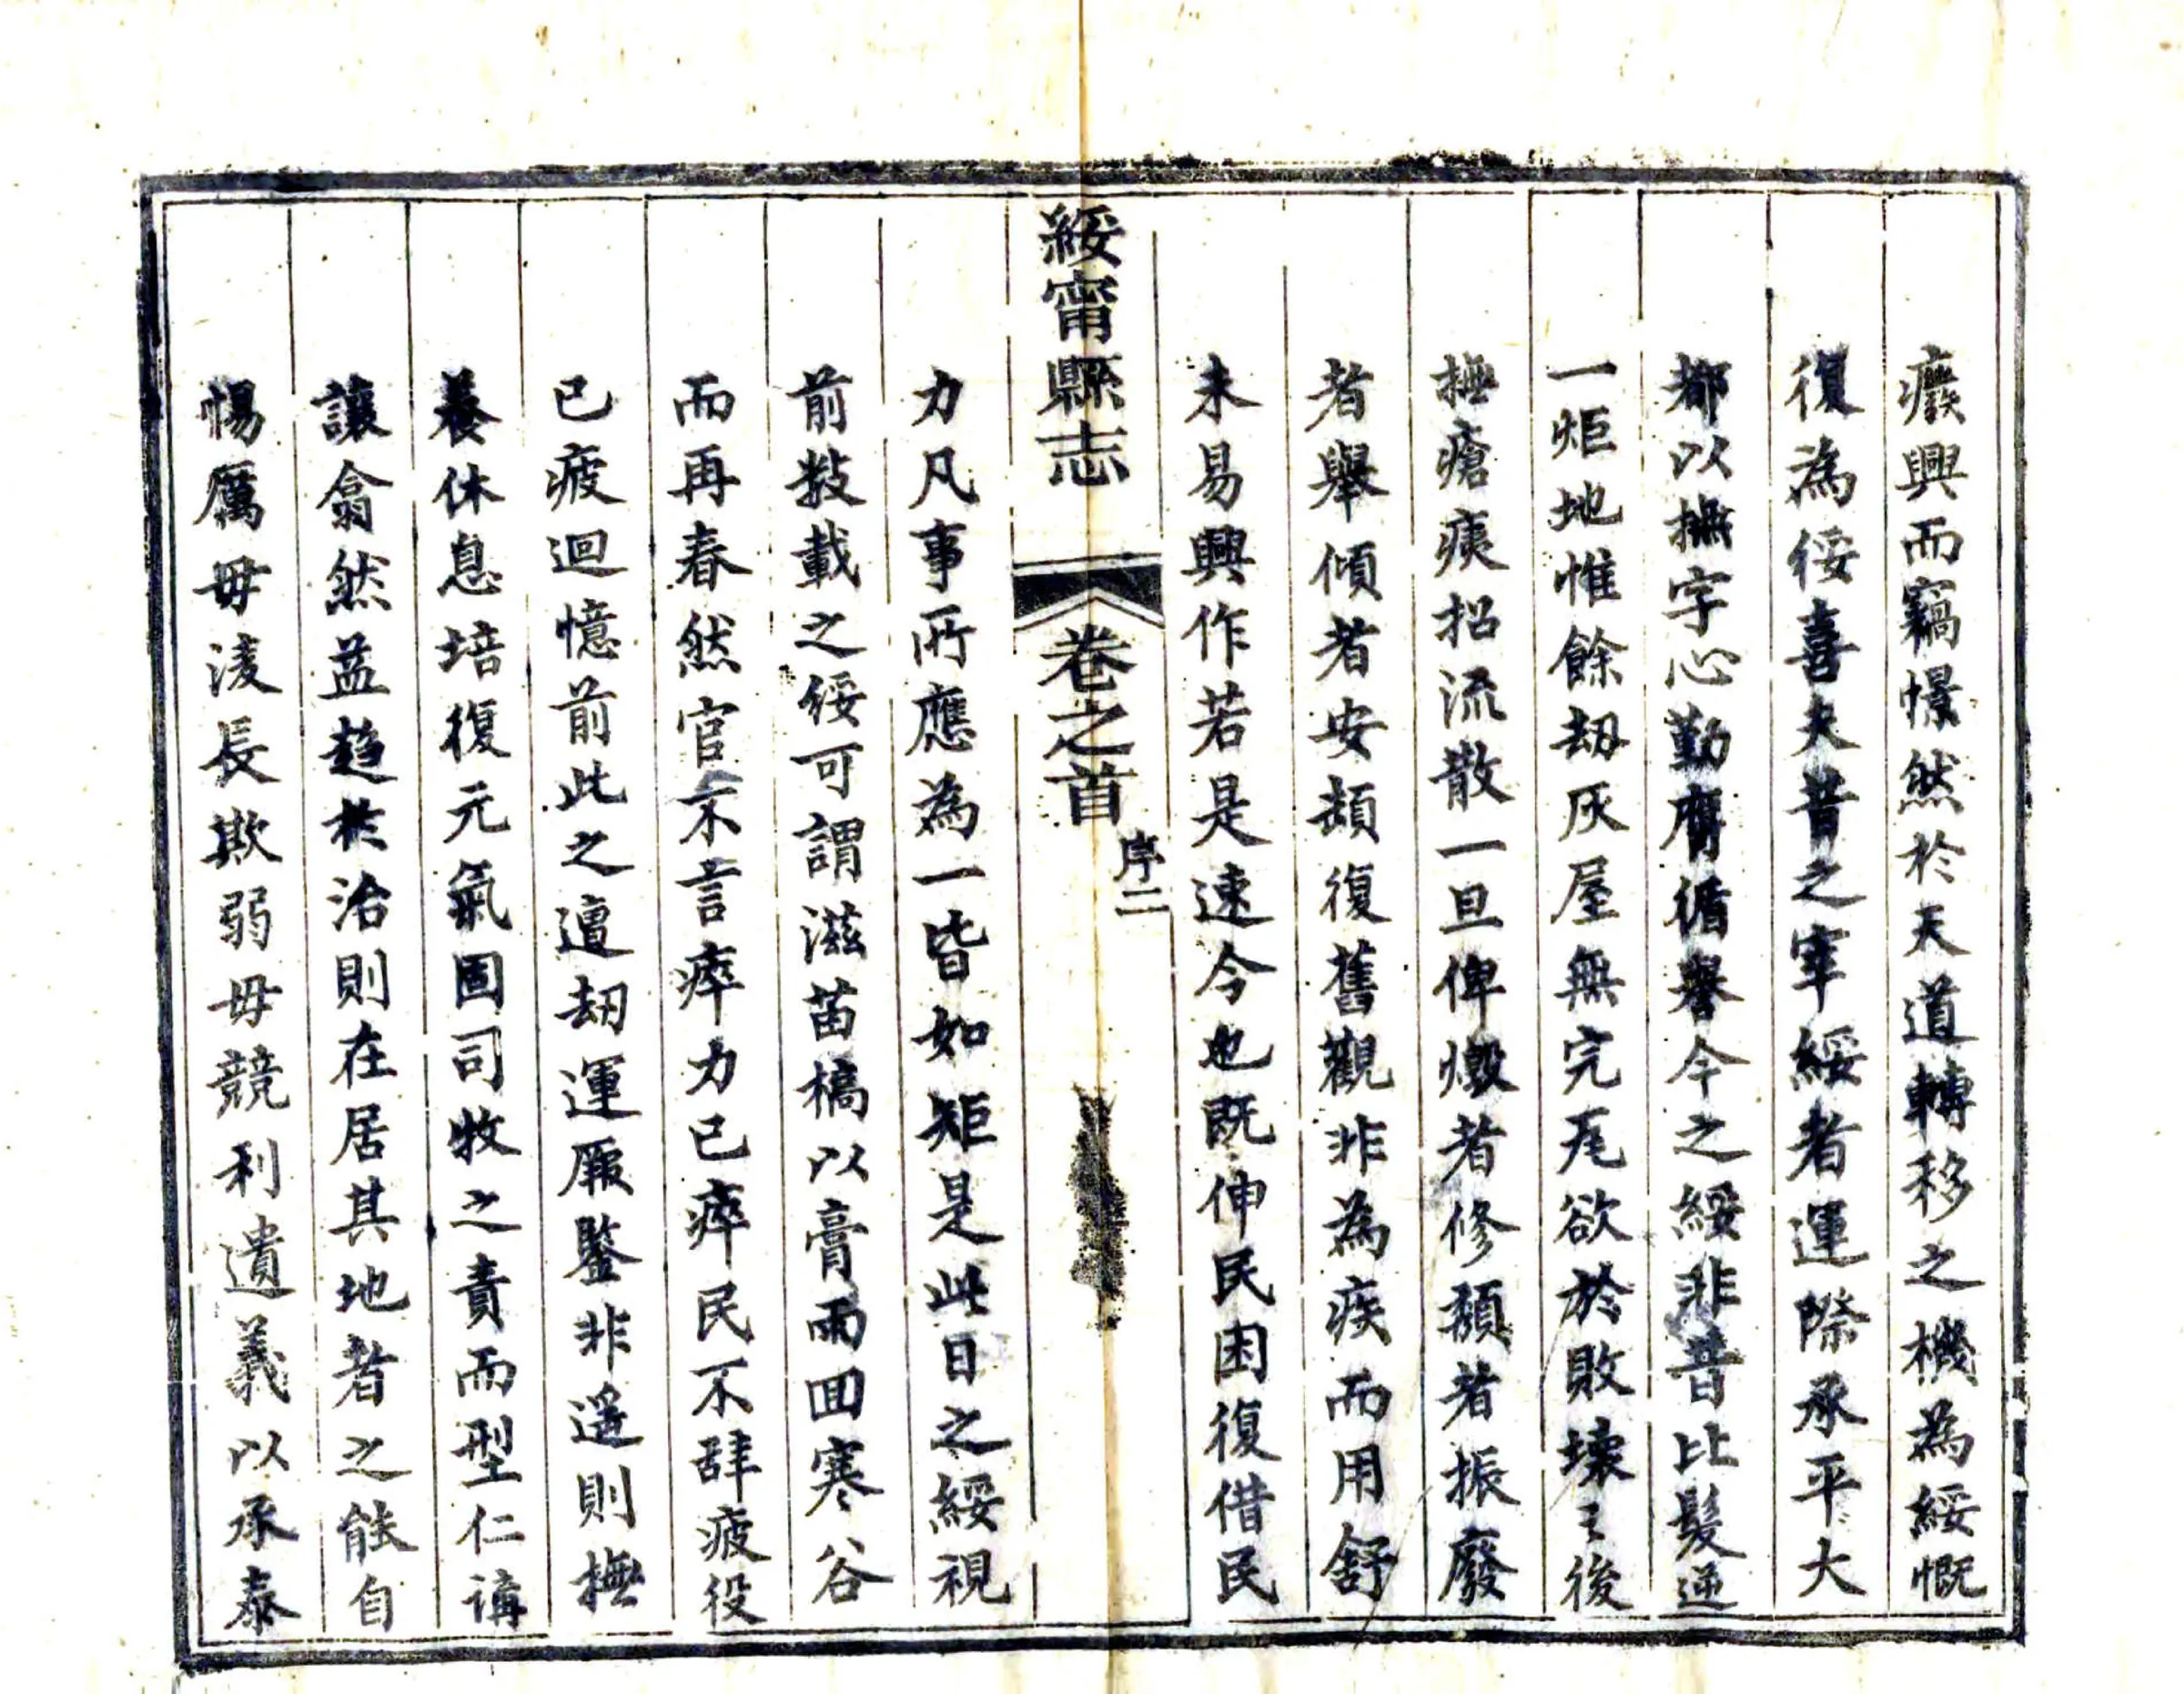 癈興而竊憬然於天道轉移之機為綏慨
復為綏喜夫昔之宰綏者運際承平大
都以撫字心勤膺循譽今之綏非昔比髮逆
一炬地惟餘劫灰屋無完瓦欲於敗壞之後
撫瘡痍招流散一旦俾燬者修頹者振廢
者舉傾者安頓復舊觀非為疾而用舒
未易興作若是速今也既伸民困復借民
綏甯縣志 卷之首 序二
力凡事所應為一皆如矩是此日之綏視
前數載之綏可謂滋苗槁以膏雨回寒谷
而再春然官不言瘁力已瘁民不辞疲役
已疲迴憶前此之遭劫運厥鑒非遥則撫
養休息培復元氣固司牧之責而型仁講
讓翕然益趨於治則在居其地者之能自
惕厲毋淩長欺弱毋競利遺義以承泰